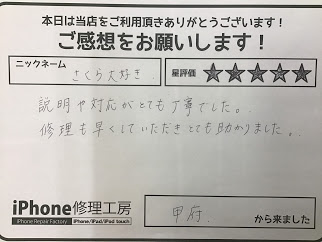 本日は当店をご利用頂きありがとうございます！
ご感想をお願いします！
ニックネーム さくら大好き 星評価 ★★★★★
説明や対応がとても丁寧でした。
修理も早くしていただきとても助かりました。
iPhone修理工房 甲府 から来ました
iPhone Repair Factory iPhone/iPad/iPod touch